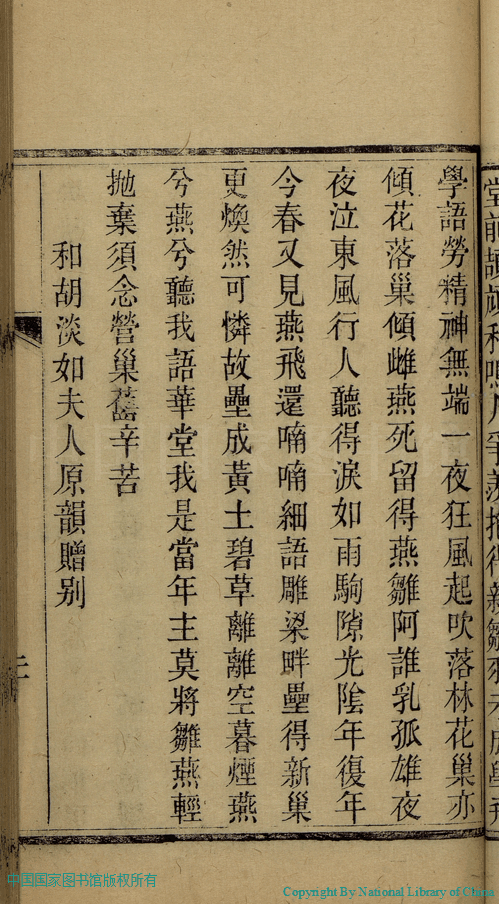 學語勞精神無端一夜狂風起吹落林花巢亦
傾花落巢傾雌燕死留得燕雛阿誰乳孤雄夜
夜泣東風行人聽得淚如雨駒隙光陰年復年
今春又見燕飛還喃喃細語雕梁畔壘得新巢
更煥然可憐故壘成黃土碧草離離空暮煙燕
兮燕兮聽我語華堂我是當年主莫將雛燕輕
拋棄須念營巢舊辛苦
和胡淡如夫人原韻贈別
中国国家图书馆版权所有
Copyright By National Library of China